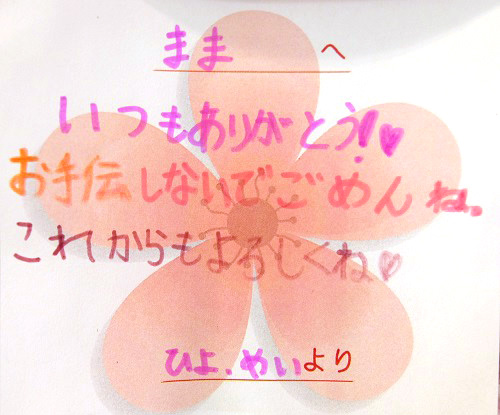 まま へ
いつもありがとう!♥
お手伝しないでごめんね。
これからもよろしくね♥
ひよ、やいより